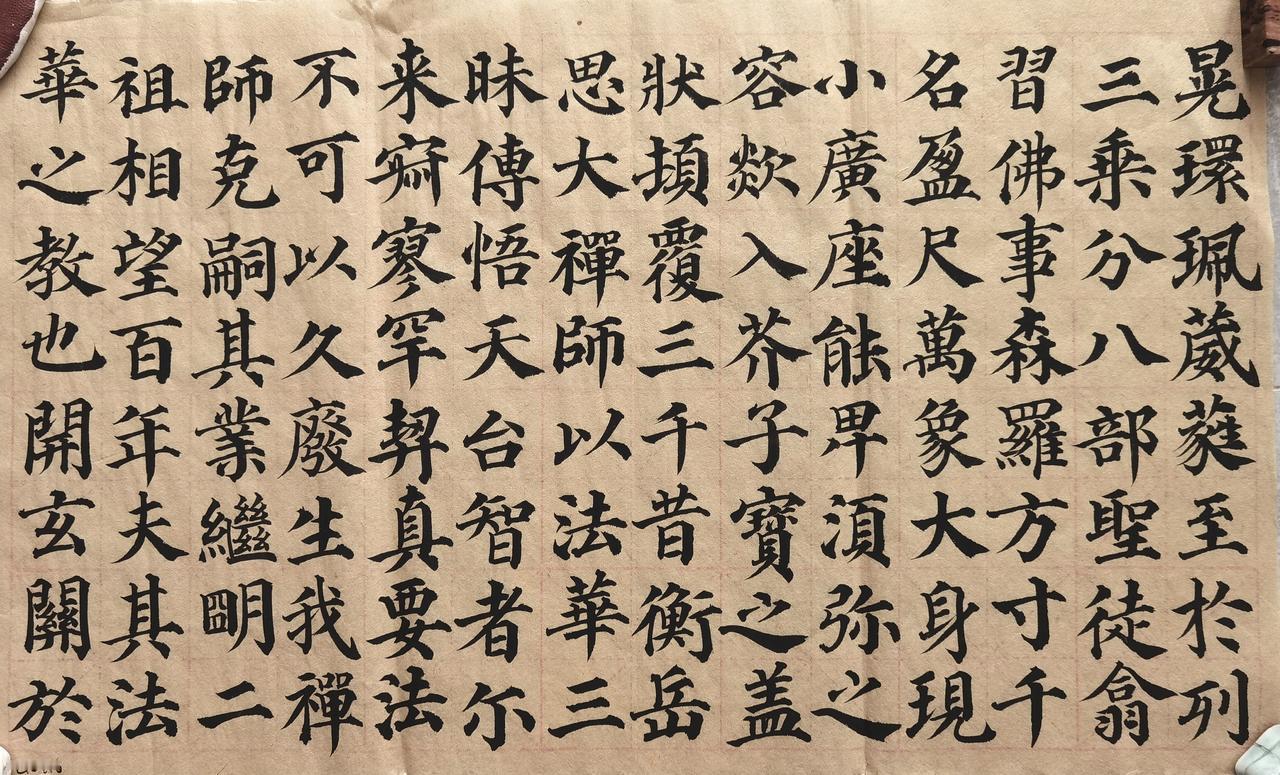 晃環珮葳蕤至於列
三乘分八部聖徒翕
習佛事森羅方寸千
名盈尺萬象大身現
小廣座能卑湏弥之
容欻入芥子寶之盖
狀頓覆三千昔衡岳
思大禪師以法華三
昧傳悟天台智者尔
来寂寥罕契真要法
不可以久廢生我禪
師克嗣其業繼明二
祖相望百年夫其法
華之教也開玄關於